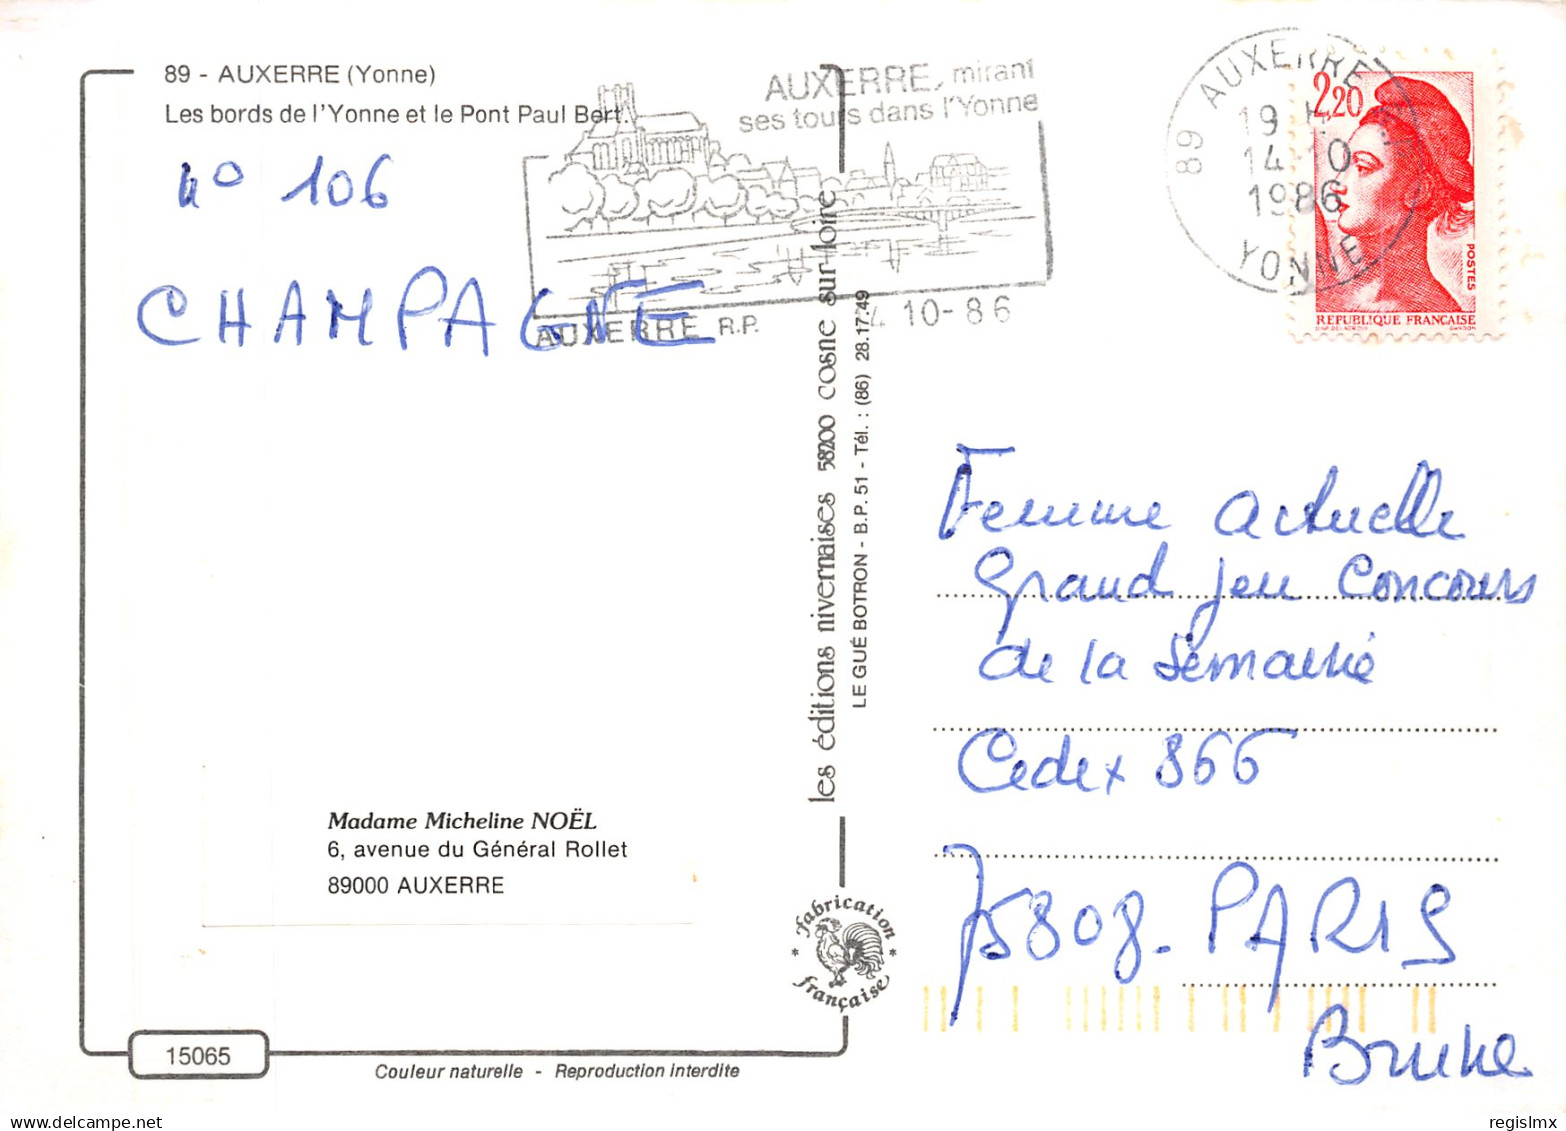 89 - AUXERRE (Yonne)
Les bords de l'Yonne et le Pont Paul Bert.
n° 106
CHAMPAGNE
AUXERRE, mirant
ses tours dans l'Yonne
AUXERRE R.P.
14 10-86
89 AUXERRE
19 H
14-10
1986
YONNE
2,20
POSTES
REPUBLIQUE FRANÇAISE
GANDON
les éditions nivernaises 58200 cosne sur loire
LE GUÉ BOTRON - B.P. 51 - Tél. : (86) 28.17.49
Femme actuelle
Grand Jeu Concours
de la Semaine
Cedex 866
75808 - PARIS
Brune
Madame Micheline NOËL
6, avenue du Général Rollet
89000 AUXERRE
fabrication
française
15065
Couleur naturelle - Reproduction interdite
regislmx